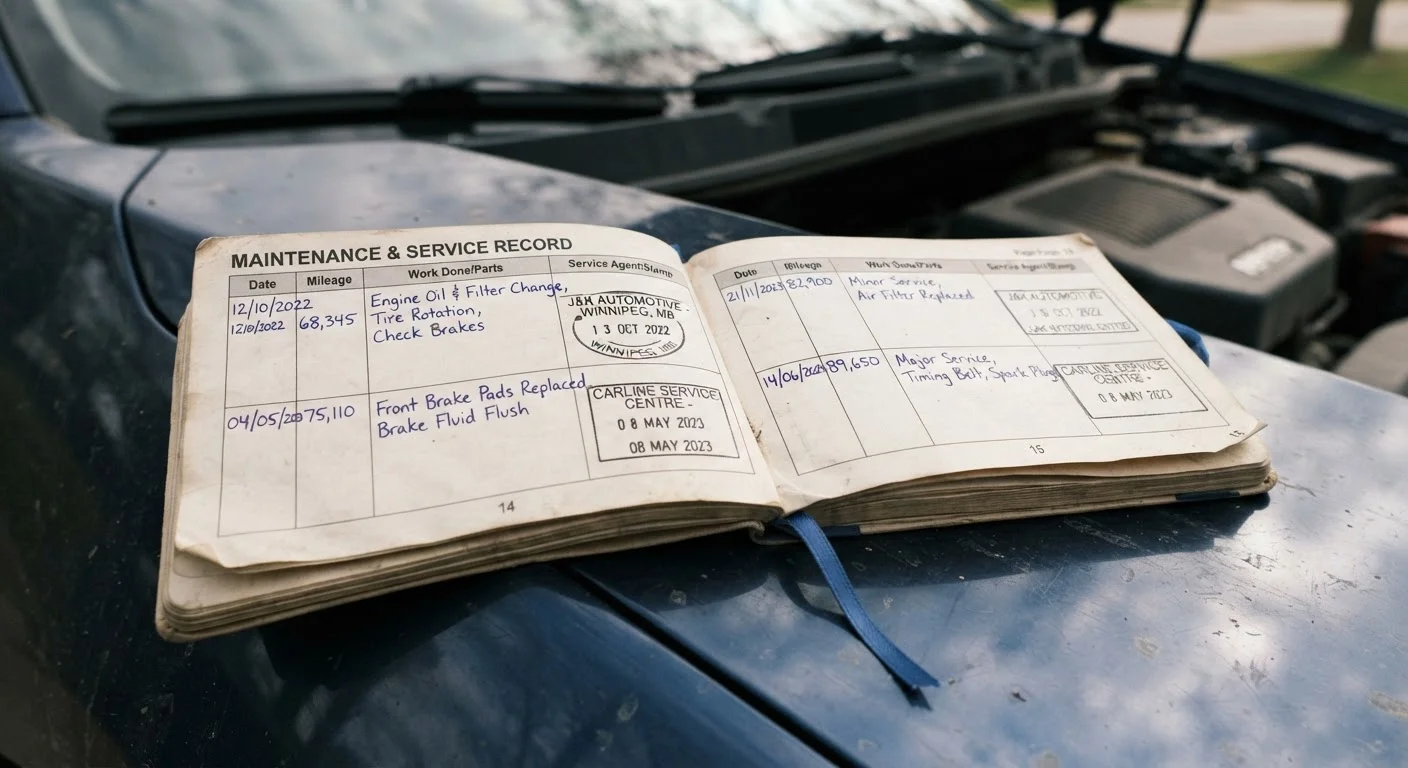 MAINTENANCE & SERVICE RECORD
Date Mileage Work Done/Parts Service Agent/Stamp
12/10/2022
12/10/2022 68,345
Engine Oil & Filter Change,
Tire Rotation,
Check Brakes
J&H AUTOMOTIVE -
WINNIPEG, MB
13 OCT 2022
WINNIPEG,
04/05/ 75,110
Front Brake Pads Replaced,
Brake Fluid Flush
CARLINE SERVICE
CENTRE -
08 MAY 2023
08 MAY 2023
14
Date Mileage Work Done/Parts Service Agent/Stamp
21/11/2023 82,900
Minor Service,
Air Filter Replaced
AUTOMOTIVE
OCT 2022
14/06/ 89,650
Major Service,
Timing Belt, Spark Plugs
CARLINE SERVICE
CENTRE -
08 MAY 2023
15